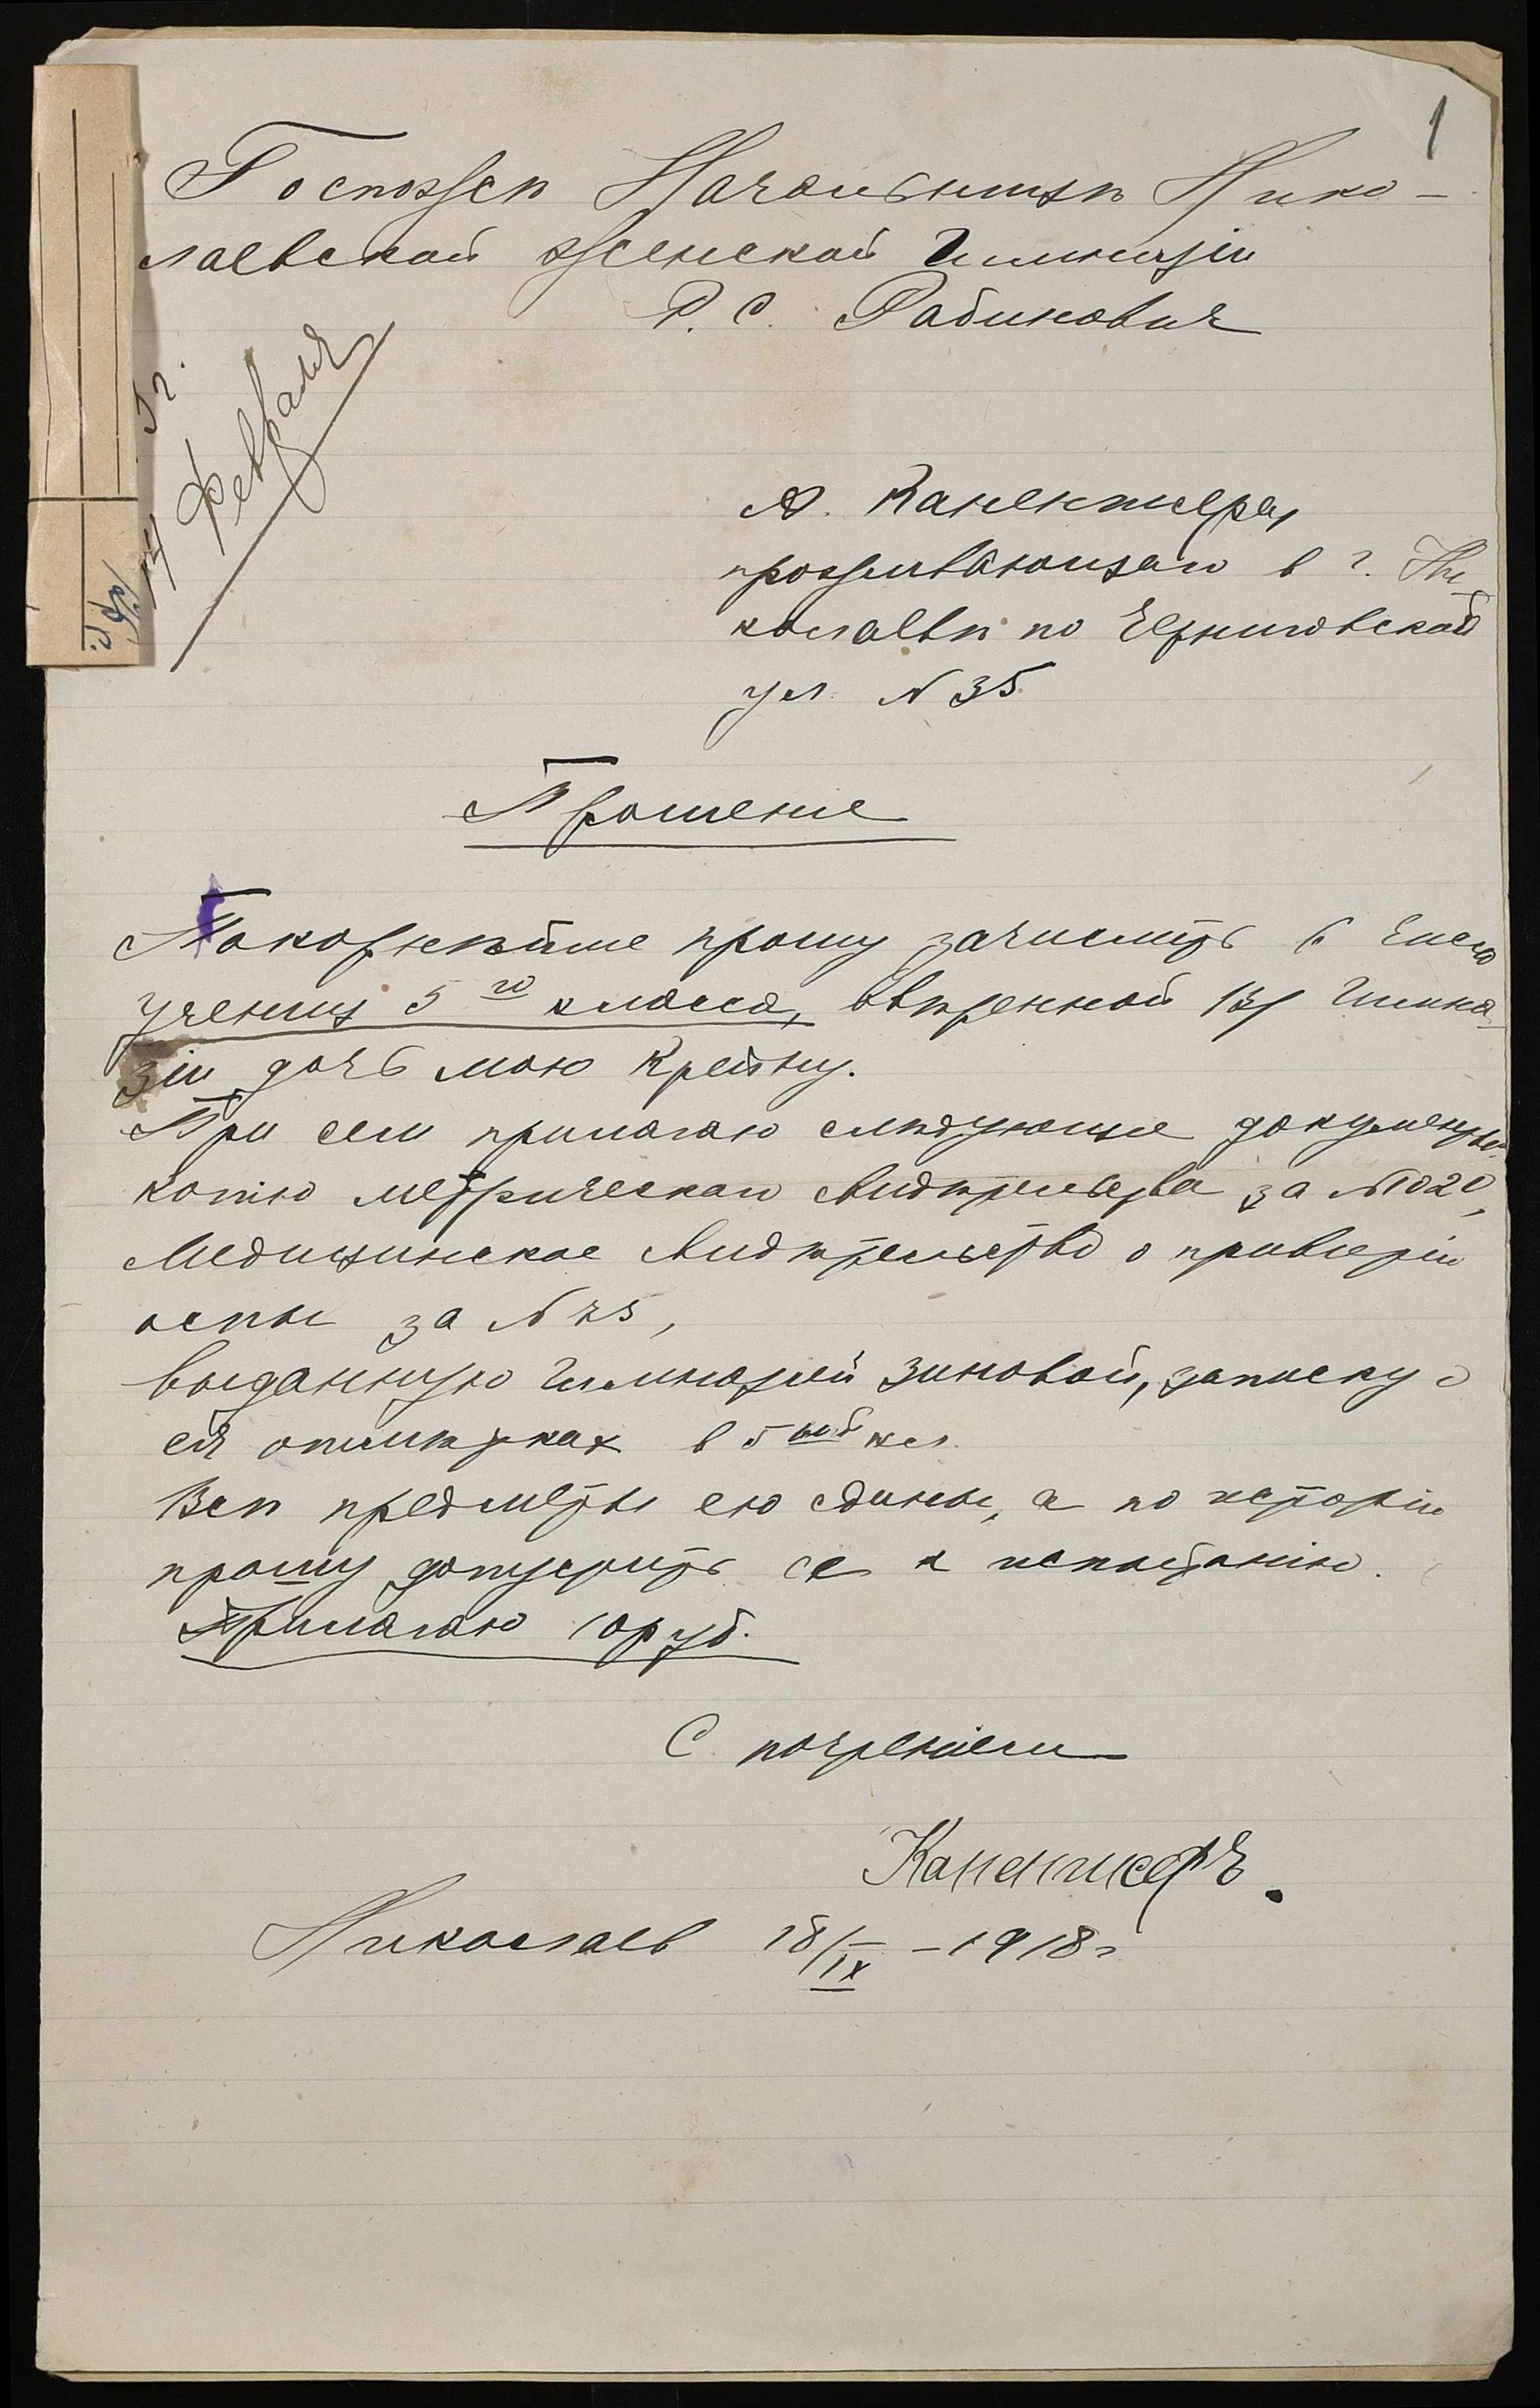 1
Госпожѣ Начальницѣ Нико-
лаевской женской Гимназіи
Р. С. Рабинович
Февраля
А. Каненгисера,
проживающаго в г. Ни
колаевѣ по Черниговской
ул. N 35
Прошение
Покорнѣйше прошу зачислить в число
учениц 5го класса, ввѣренной Вам Гимна-
зіи дочь мою Крейну.
При сем прилагаю слѣдующие документы:
копію метрическаго свидѣтельства за N 1020,
Медицинское свидѣтельство о привитіи
оспы за N 75,
выданную Гимназіей Зиновой, записку о
ея отмѣтках в 5ый кл.
Всѣ предметы ею сданы, а по исторіи
прошу допустить ее к испытанію.
Прилагаю 10 руб.
С почтеніем
Каненгисеръ.
Николаев 18/IX – 1918 г